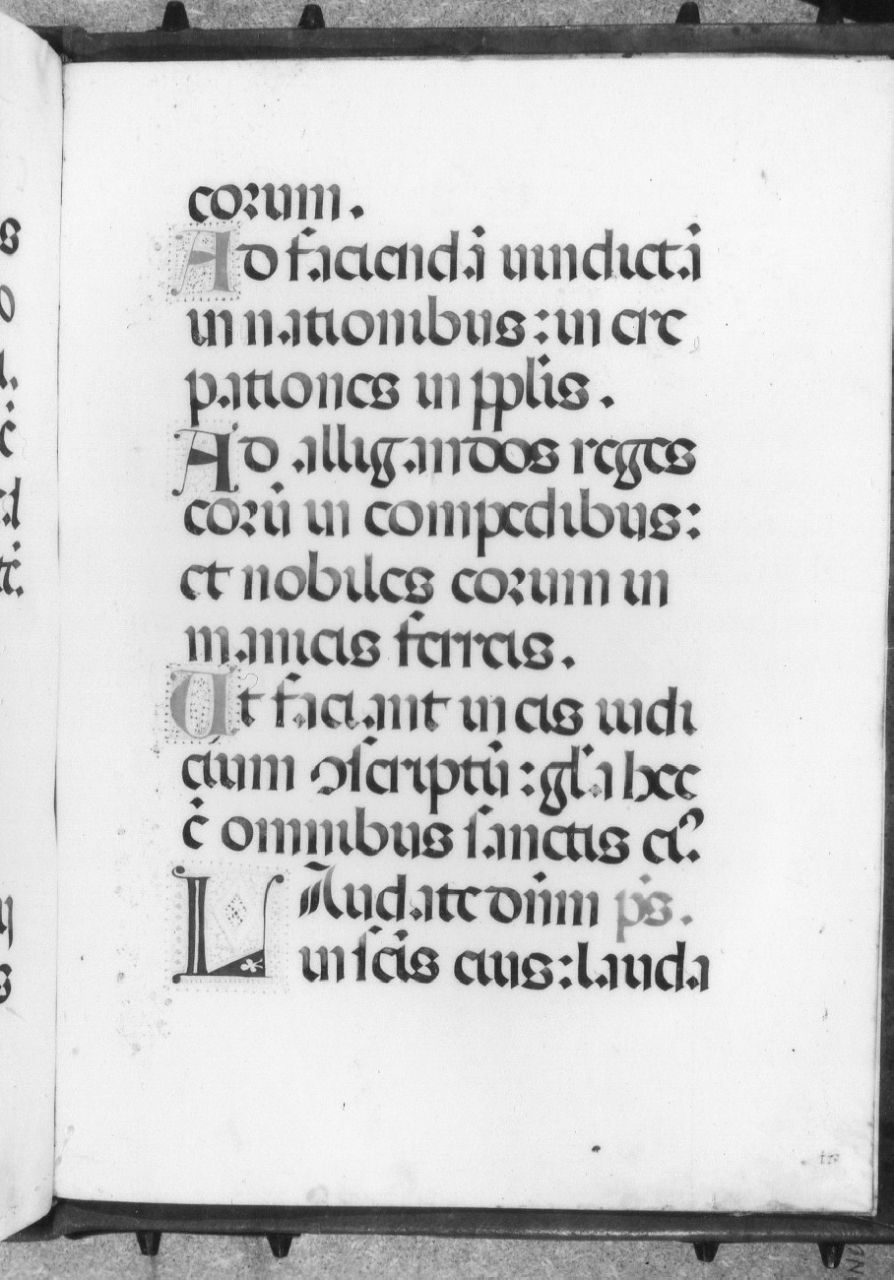 corum.
Ad faciendā uindictā
in nationibus: in cre
pationes in ppl̄is.
Ad alligandos reges
eorū in compedibus:
et nobiles eorum in
manicis ferreis.
Ut faciant in eis iudi
cium ɔscriptū: gl̄a hec
ē omnibus sanctis ei᾽.
Laudate dn̄m ps̄.
in sc̄is eius: lauda